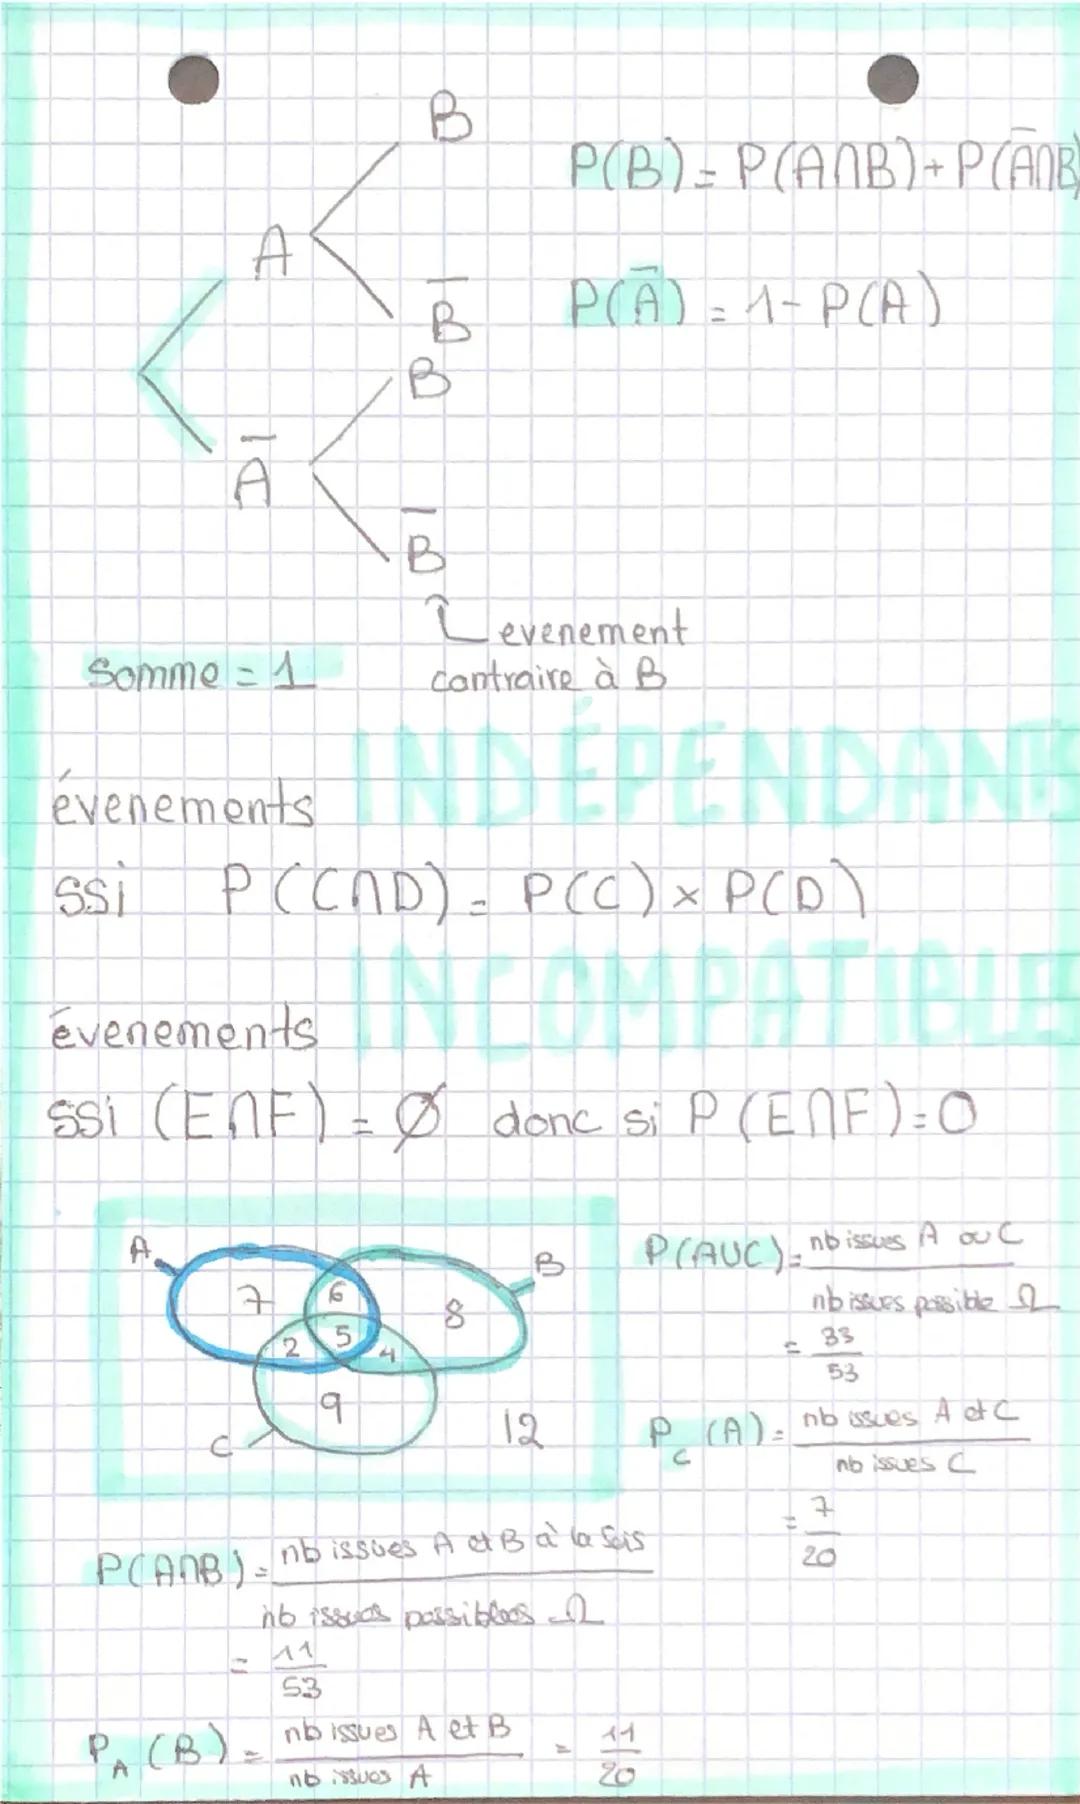 B
P(B) = P(A∩B) + P(Ā∩B)
A
B̅
P(Ā) = 1 - P(A)
B
Ā
B̅
evenement
contraire à B
Somme = 1
évenements INDÉPENDANTS
ssi P(C∩D) = P(C) × P(D)
évenements INCOMPATIBLE
ssi (E∩F) = Ø donc si P(E∩F) = 0
A
B
7
6
8
2
5
4
9
C
12
P(A∪C) = nb issues A ou C
nb issues possible Ω
= 33
53
P_C (A) = nb issues A et C
nb issues C
= 7
20
P(A∩B) = nb issues A et B à la fois
nb issues possibles Ω
= 11
53
P_A (B) = nb issues A et B = 11
nb issues A 20